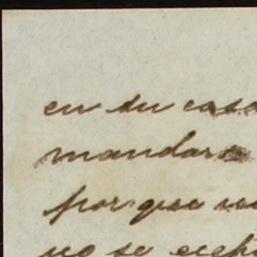 en su casa
mandar
porque
no se